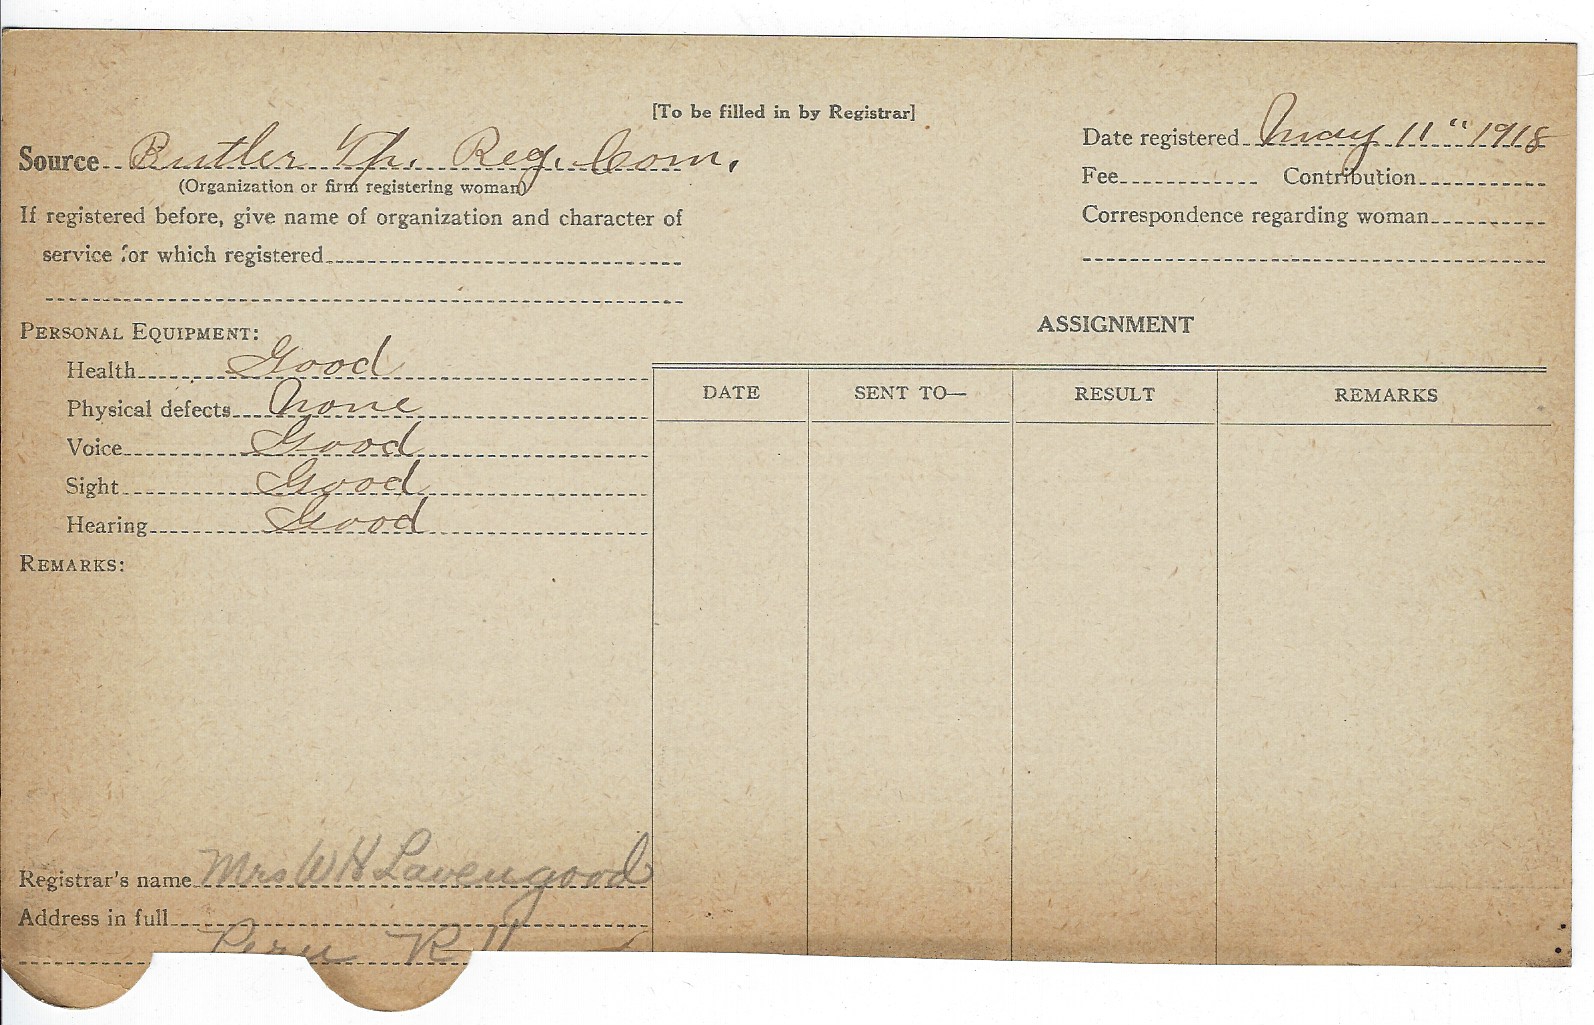 [To be filled in by Registrar]
Source Butler Tp. Reg. Com.
(Organization or firm registering woman)
If registered before, give name of organization and character of
service for which registered
Date registered May 11" 1918
Fee Contribution
Correspondence regarding woman
PERSONAL EQUIPMENT:
Health Good
Physical defects None
Voice Good
Sight Good
Hearing Good
REMARKS:
ASSIGNMENT
DATE SENT TO— RESULT REMARKS
Registrar's name Mrs W H Lavengood
Address in full
Peru R